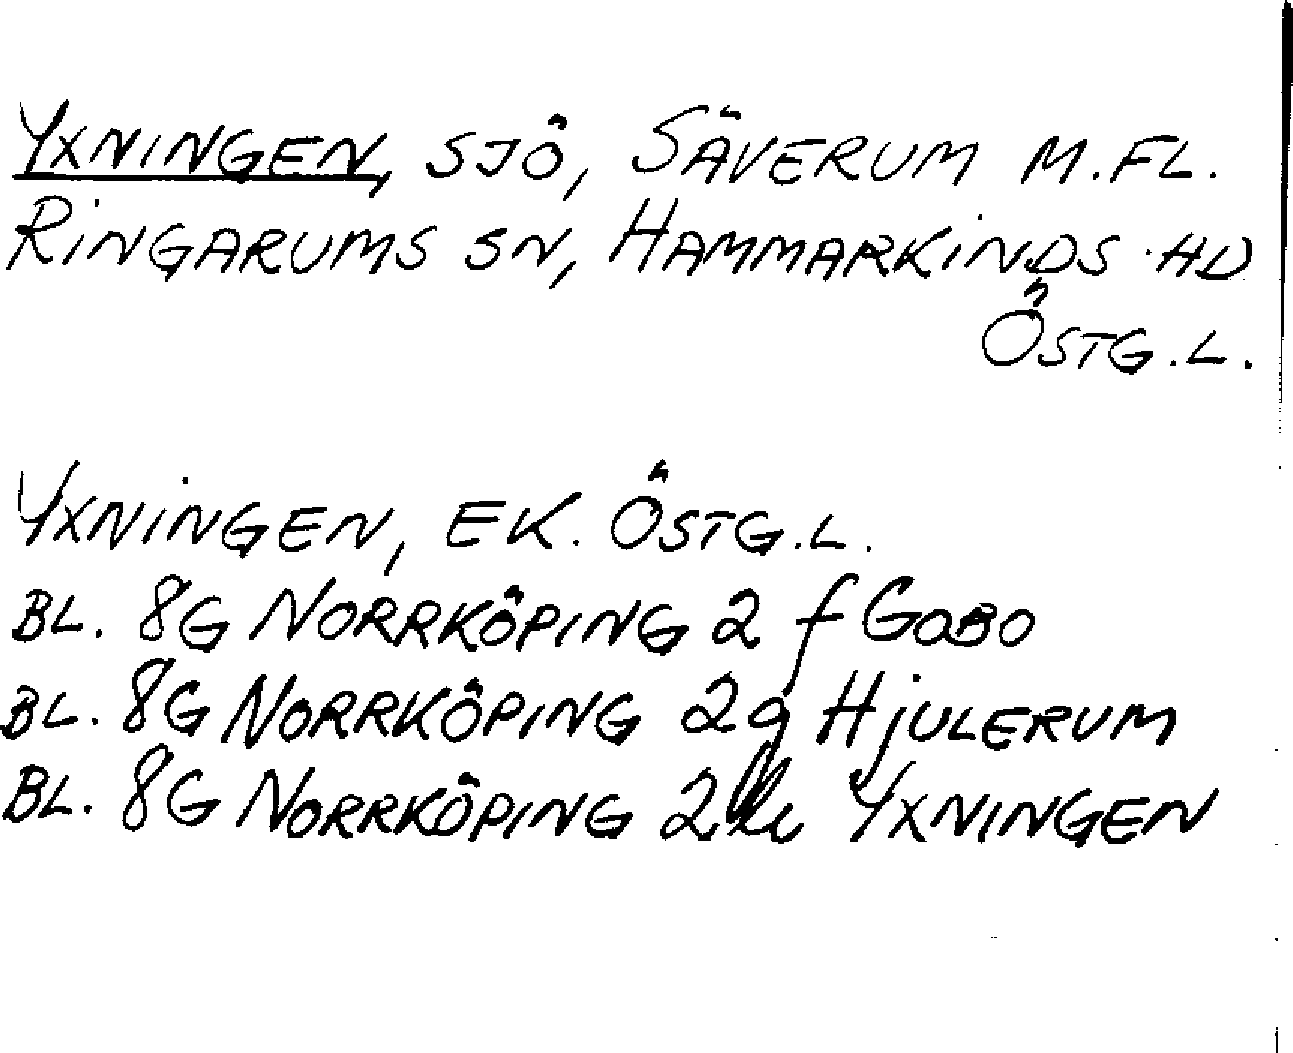 YXNINGEN, SJÖ, SÄVERUM M.FL.
RINGARUMS SN, HAMMARKINDS HD
ÖSTG.L.
YXNINGEN, EK. ÖSTG.L.
BL. 8G NORRKÖPING 2 f GOBO
BL. 8G NORRKÖPING 2g HJULERUM
BL. 8G NORRKÖPING 2 YXNINGEN